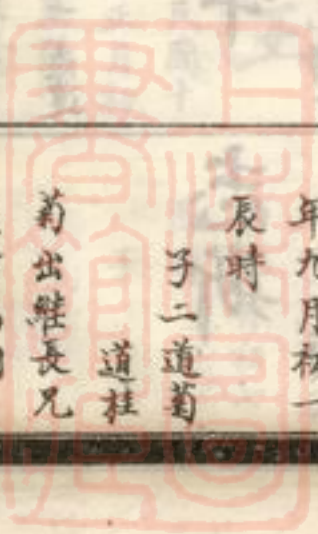 年九月初一
辰時
子二道菊
道桂
菊出繼長兄